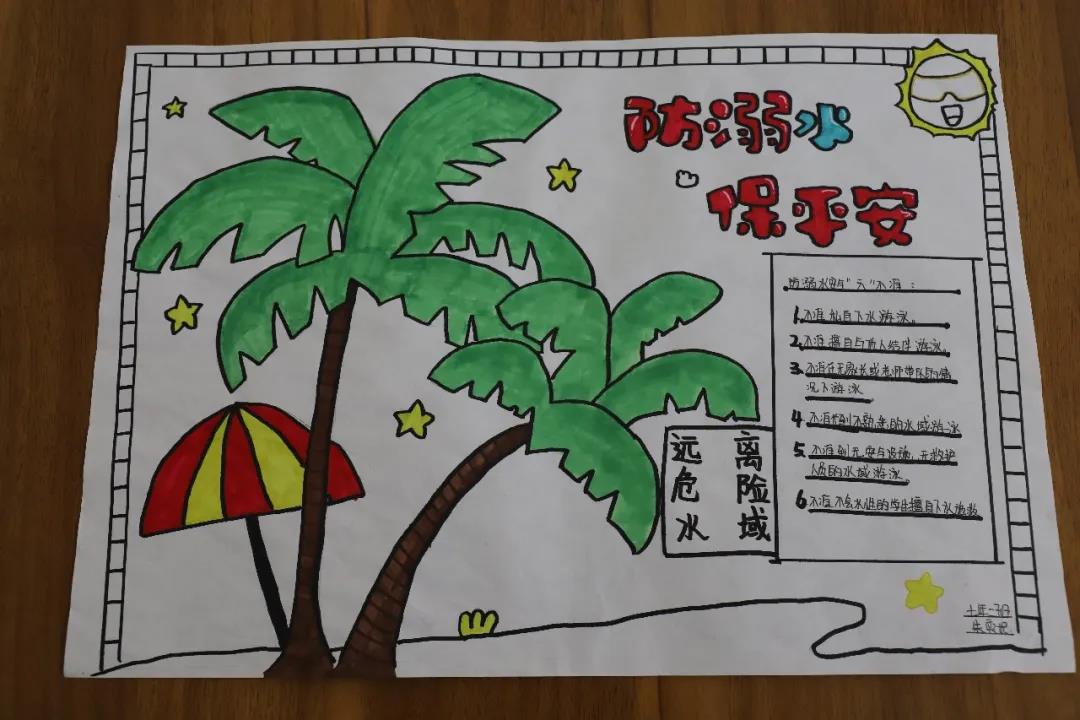 防溺水
保平安
防溺水安全"六"不准：
1.不准私自下水游泳。
2.不准擅自与他人结伴游泳。
3.不准在无家长或老师带队的情
况下游泳
4 不准到不熟悉的水域游泳
5.不准到无安全设施、无救护
人员的水域游泳。
6 不准不会水性的学生擅自下水施救
远离
危险
水域